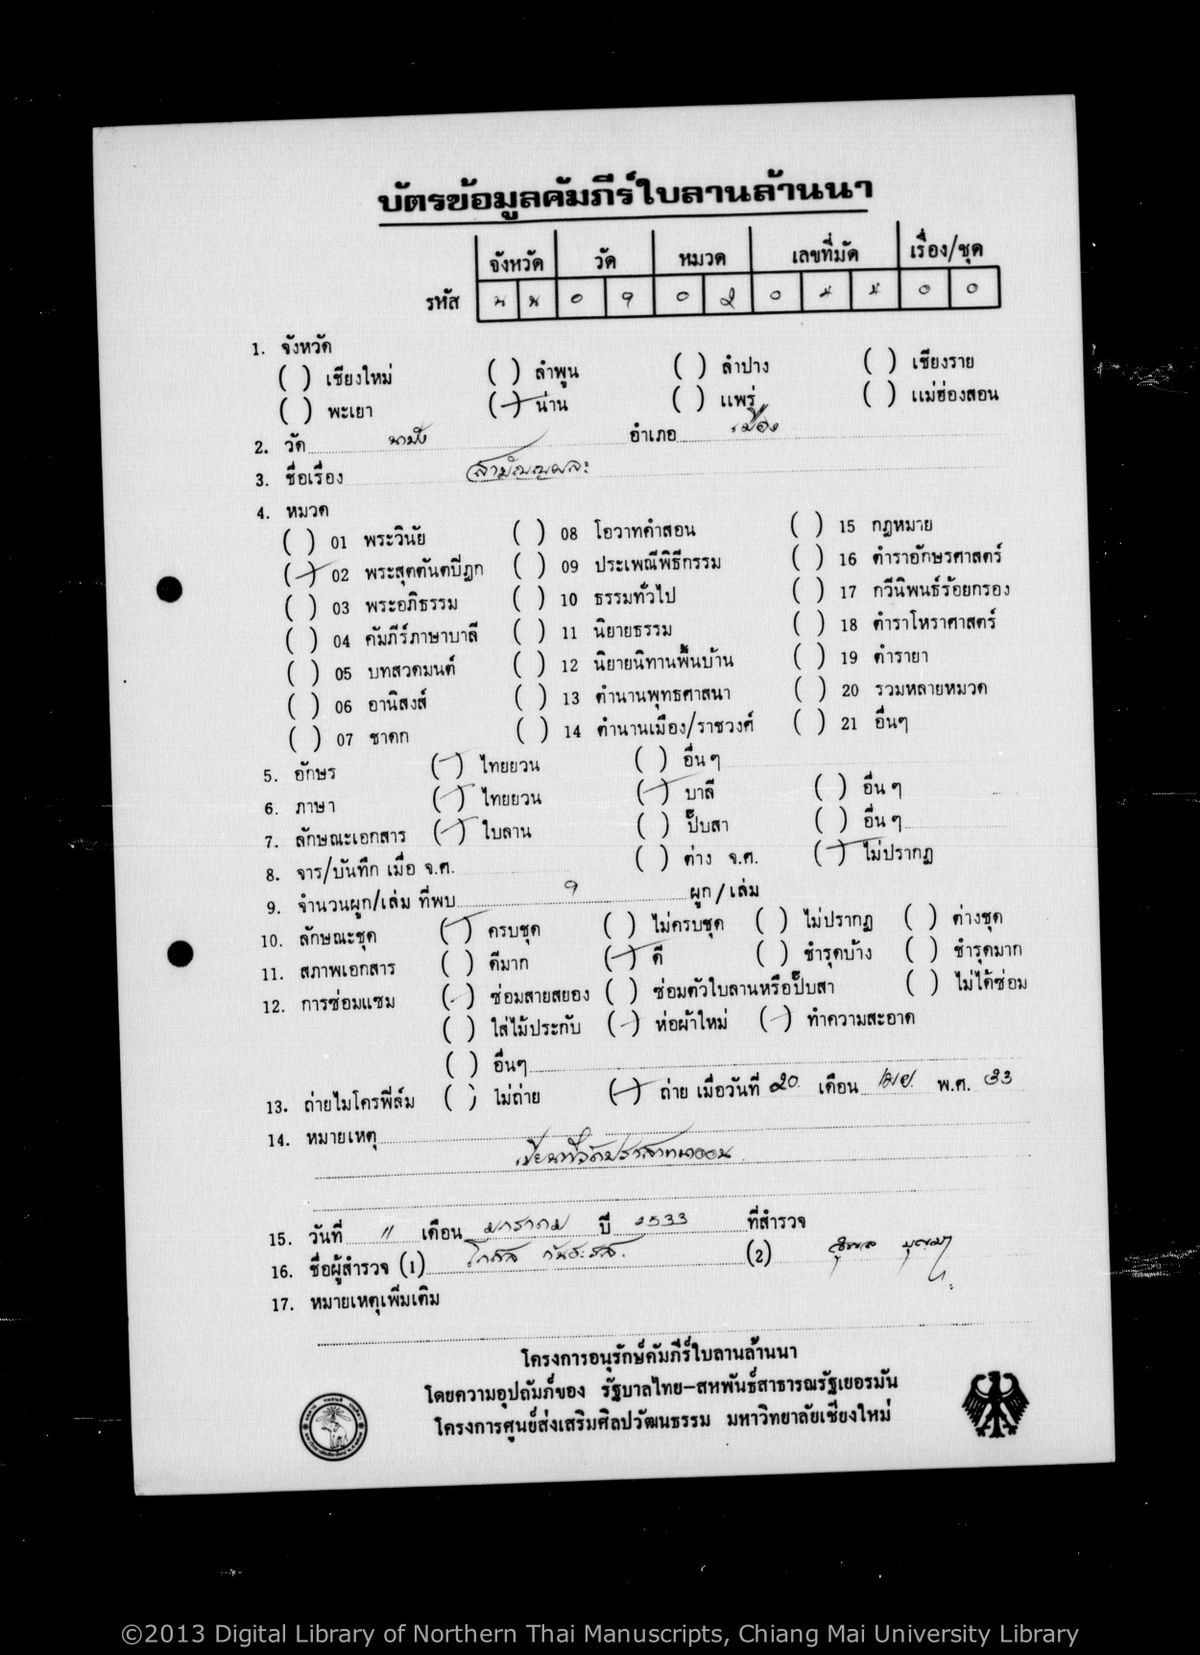 บัตรข้อมูลคัมภีร์ใบลานล้านนา
จังหวัด วัด หมวด เลขที่มัด เรื่อง/ชุด
รหัส น น 0 9 0 2 0 0 0
1. จังหวัด
( ) เชียงใหม่ ( ) ลำพูน ( ) ลำปาง ( ) เชียงราย
( ) พะเยา (/) น่าน ( ) แพร่ ( ) แม่ฮ่องสอน
2. วัด นาปัง อำเภอ เมือง
3. ชื่อเรื่อง สามัญญผละ
4. หมวด
( ) 01 พระวินัย ( ) 08 โอวาทคำสอน ( ) 15 กฎหมาย
(/) 02 พระสุตตันตปิฎก ( ) 09 ประเพณีพิธีกรรม ( ) 16 ตำราอักษรศาสตร์
( ) 03 พระอภิธรรม ( ) 10 ธรรมทั่วไป ( ) 17 กวีนิพนธ์ร้อยกรอง
( ) 04 คัมภีร์ภาษาบาลี ( ) 11 นิยายธรรม ( ) 18 ตำราโหราศาสตร์
( ) 05 บทสวดมนต์ ( ) 12 นิยายนิทานพื้นบ้าน ( ) 19 ตำรายา
( ) 06 อานิสงส์ ( ) 13 ตำนานพุทธศาสนา ( ) 20 รวมหลายหมวด
( ) 07 ชาดก ( ) 14 ตำนานเมือง/ราชวงศ์ ( ) 21 อื่นๆ
5. อักษร (/) ไทยยวน ( ) อื่นๆ
6. ภาษา (/) ไทยยวน (/) บาลี ( ) อื่นๆ
7. ลักษณะเอกสาร (/) ใบลาน ( ) ปั๊บสา ( ) อื่นๆ
8. จาร/บันทึก เมื่อ จ.ศ. ( ) ต่าง จ.ศ. (/) ไม่ปรากฏ
9. จำนวนผูก/เล่ม ที่พบ ๑ ผูก/เล่ม
10. ลักษณะชุด (/) ครบชุด ( ) ไม่ครบชุด ( ) ไม่ปรากฏ ( ) ต่างชุด
11. สภาพเอกสาร ( ) ดีมาก (/) ดี ( ) ชำรุดบ้าง ( ) ชำรุดมาก
12. การซ่อมแซม (/) ซ่อมสายสยอง ( ) ซ่อมตัวใบลานหรือปั๊บสา ( ) ไม่ได้ซ่อม
( ) ใส่ไม้ประกับ (/) ห่อผ้าใหม่ (/) ทำความสะอาด
( ) อื่นๆ
13. ถ่ายไมโครฟิล์ม ( ) ไม่ถ่าย (/) ถ่าย เมื่อวันที่ ๒๐ เดือน เมย. พ.ศ. 33
14. หมายเหตุ
เขียนที่วัดปราสาท
15. วันที่ 11 เดือน มกราคม ปี 2533 ที่สำรวจ
16. ชื่อผู้สำรวจ (1) โกศล กันธะรส. (2)
17. หมายเหตุเพิ่มเติม
โครงการอนุรักษ์คัมภีร์ใบลานล้านนา
โดยความอุปถัมภ์ของ รัฐบาลไทย-สหพันธ์สาธารณรัฐเยอรมัน
โครงการศูนย์ส่งเสริมศิลปวัฒนธรรม มหาวิทยาลัยเชียงใหม่
©2013 Digital Library of Northern Thai Manuscripts, Chiang Mai University Library